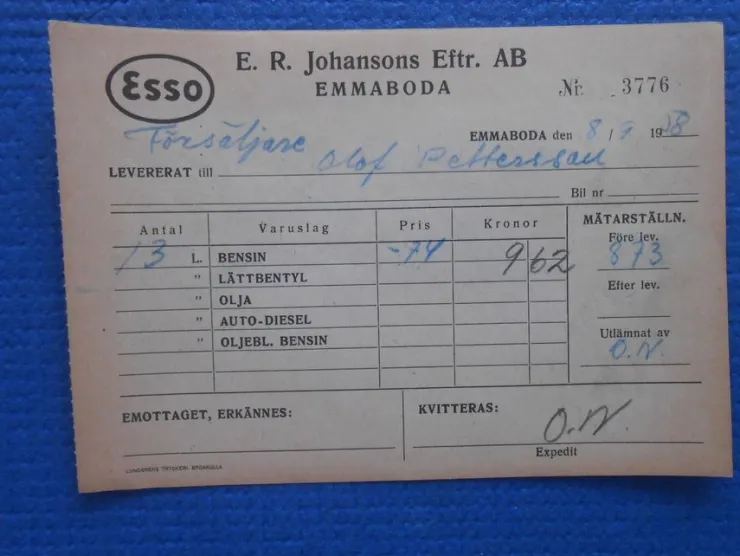 Esso
E. R. Johansons Eftr. AB
EMMABODA
Nr. 3776
Försäljare
EMMABODA den 8/9 1958
LEVERERAT till Olof Pettersson
Bil nr
Antal Varuslag Pris Kronor MÄTARSTÄLLN.
Före lev.
13 L. BENSIN -74 9 62 873
" LÄTTBENTYL
Efter lev.
" OLJA
" AUTO-DIESEL
Utlämnat av
" OLJEBL. BENSIN
O.N.
EMOTTAGET, ERKÄNNES: KVITTERAS:
O.N.
Expedit
LUNDGRENS TRYCKERI, BROAKULLA